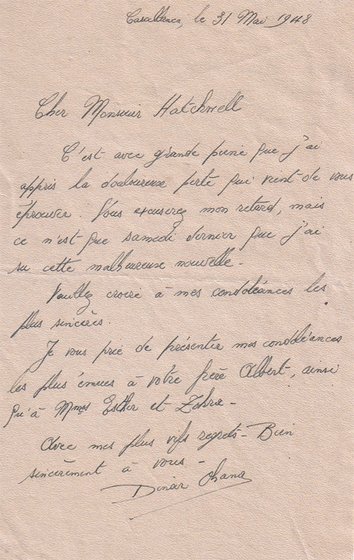 Casablanca, le 31 Mai 1948
Cher Monsieur Hatchwell
C'est avec grande peine que j'ai
appris la douloureuse perte qui vient de vous
éprouver. Vous excuserez mon retard, mais
ce n'est que samedi dernier que j'ai
su cette malheureuse nouvelle.
Veuillez croire à mes condoléances les
plus sincères.
Je vous prie de présenter mes condoléances
les plus émues à votre frère Albert, ainsi
qu'à Mmes Esther et Zohra.
Avec mes plus vifs regrets. Bien
sincèrement à vous.
Dinar Ohana